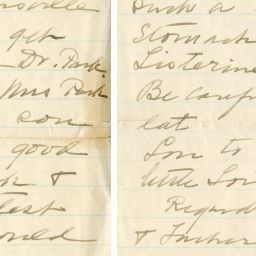 get
Dr. Park
Mrs Park
con
good
& 
ould
such a
Stomach
Listerine
Be caref
eat
Son to
little Son
Regard
& Further